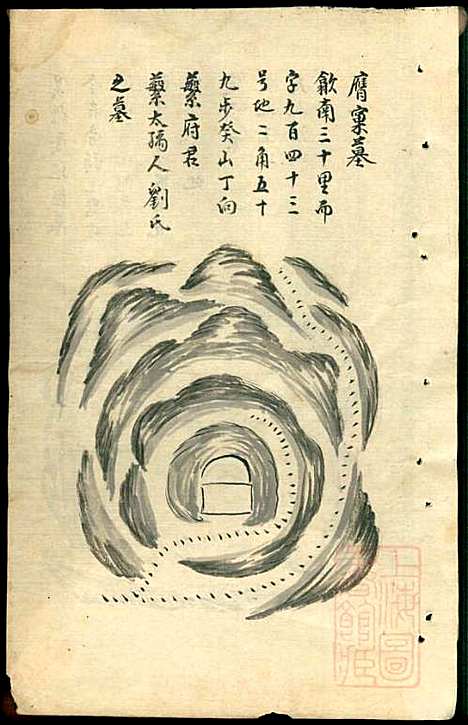 膺窠墓
歙南三十里而
字九百四十三
号地二角五十
九步癸山丁向
藂府君
藂太孺人劉氏
之墓
上海圖